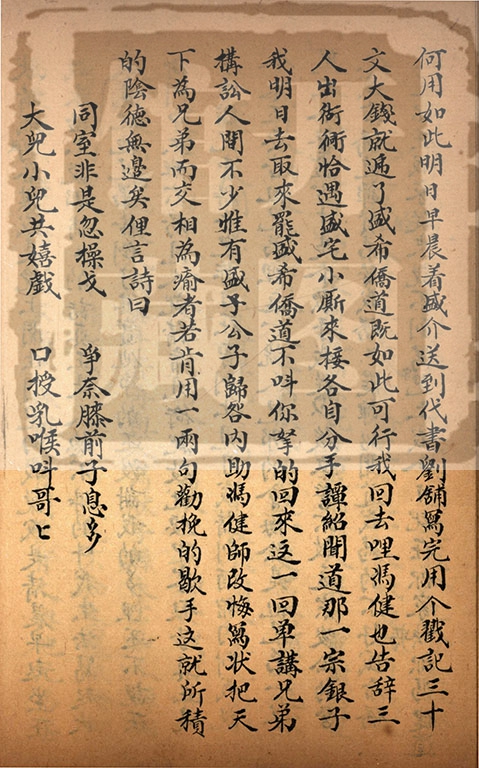 何用如此明日早晨着盛介送到代書劉舖寫完用介戳記三十
文大錢就遞了盛希僑道既如此可行我回去哩馮健也告辞三
人出衙衕恰遇盛宅小厮來接各自分手譚紹聞道那一宗銀子
我明日去取來罷盛希僑道不叫你拏的回來这一回单講兄弟
構訟人間不少惟有盛子公子歸咎内助馮健師改悔寫状把天
下為兄弟而交相為瘉者若肯用一兩句勸挽的歇手这就所積
的陰德無邊矣俚言詩曰
同室非是忽操戈　爭奈膝前子息多
大兒小兒共嬉戲　口授乳喉叫哥〻